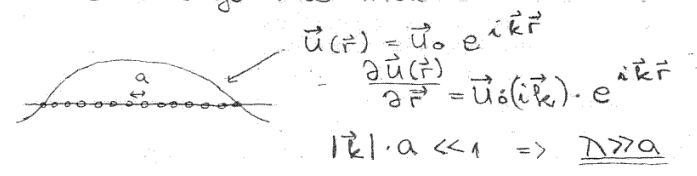 u⃗(r⃗) = u⃗₀ e^{i k⃗ r⃗}
a
∂u⃗(r⃗)/∂r⃗ = u⃗₀(i k⃗) · e^{i k⃗ r⃗}
|k⃗| · a << 1 => λ >> a